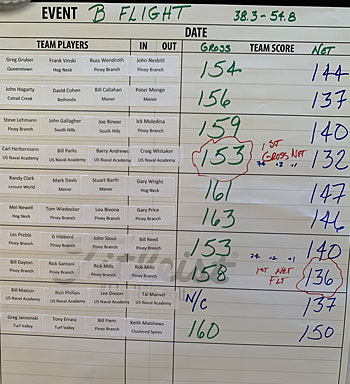 EVENT B FLIGHT 38.3-54.8
DATE
TEAM PLAYERS IN OUT GROSS TEAM SCORE NET
Greg Gruber Frank Vinski Russ Wendroth John Nesbitt
Queenstown Hog Neck Piney Branch Piney Branch
154 144
John Hogarty David Cohen Bill Callahan Peter Monge
Cattail Creek Bethesda Manor Manor
156 137
Steve Lehmann John Gallagher Joe Rineer Ick Moledina
Piney Branch South Hills South Hills Piney Branch
159 140
Carl Herbermann Bill Parks Barry Andrews Craig Whitaker
US Naval Academy US Naval Academy US Naval Academy US Naval Academy
153 1ST GROSS NET 132
Randy Clark Mark Davis Stuart Barth Gary Wright
Leisure World Manor Manor Hog Neck
161 147
Mel Newell Tom Wiedecker Lou Bivona Gary Price
Hog Neck Piney Branch Piney Branch Piney Branch
163 146
Les Preble G Hibberd John Stout Bill Reed
Piney Branch Piney Branch Piney Branch Piney Branch
153 140
Bill Dayton Rick Santoni Rick Mills Rob Mills
Piney Branch Piney Branch Piney Branch Piney Branch
158 1ST NET FLT 136
Bill Matton Rich Phillips Lee Dixson Tal Manvel
US Naval Academy US Naval Academy US Naval Academy US Naval Academy
N/C 137
Greg Jansinski Tony Errara Bill Fiens Keith Matthews
Turf Valley Turf Valley Piney Branch Clustered Spires
160 150